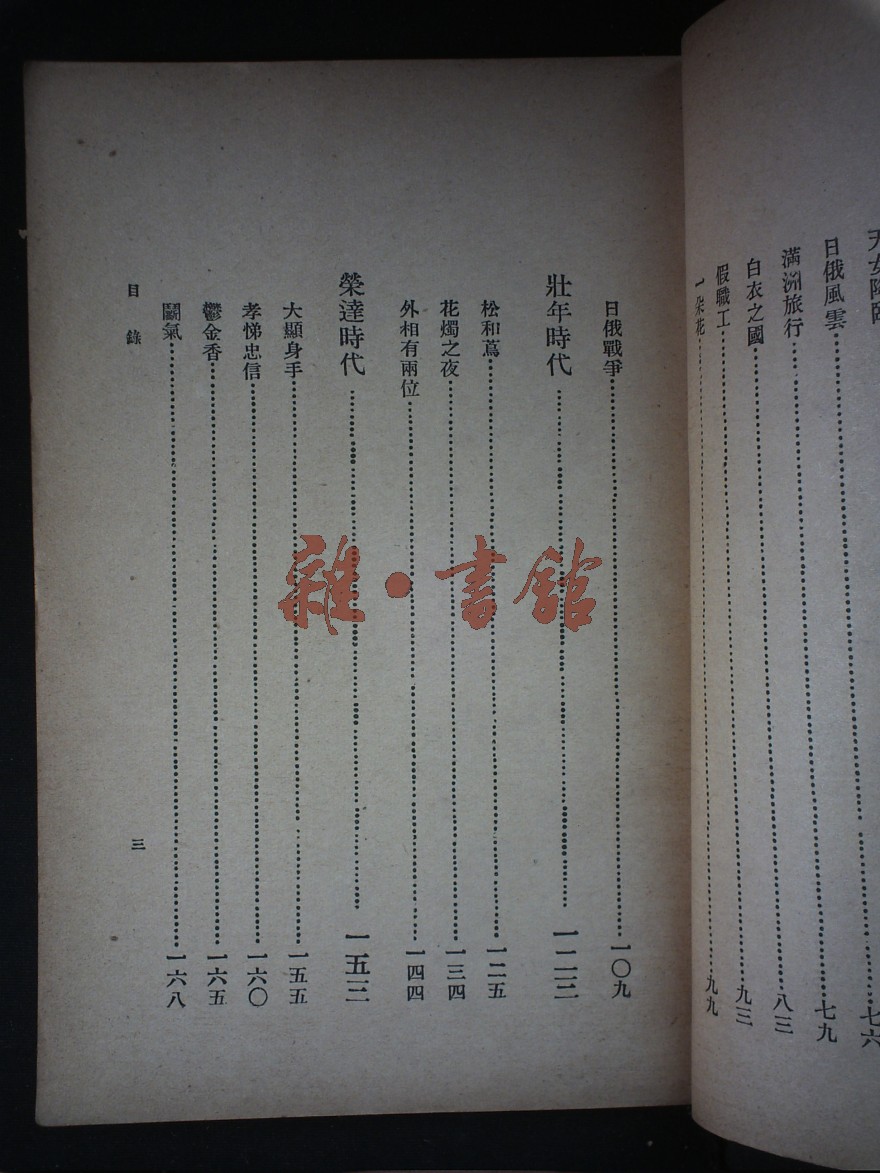 天女降臨……七六
日俄風雲……七九
滿洲旅行……八三
白衣之國……九三
假職工
一朵花……九九
日俄戰爭……一〇九
壯年時代……一二三
松和蔦……一二五
花燭之夜……一三四
外相有兩位……一四四
榮達時代……一五三
大顯身手……一五五
孝悌忠信……一六〇
鬱金香……一六五
鬭氣……一六八
目錄
三
雜·書館